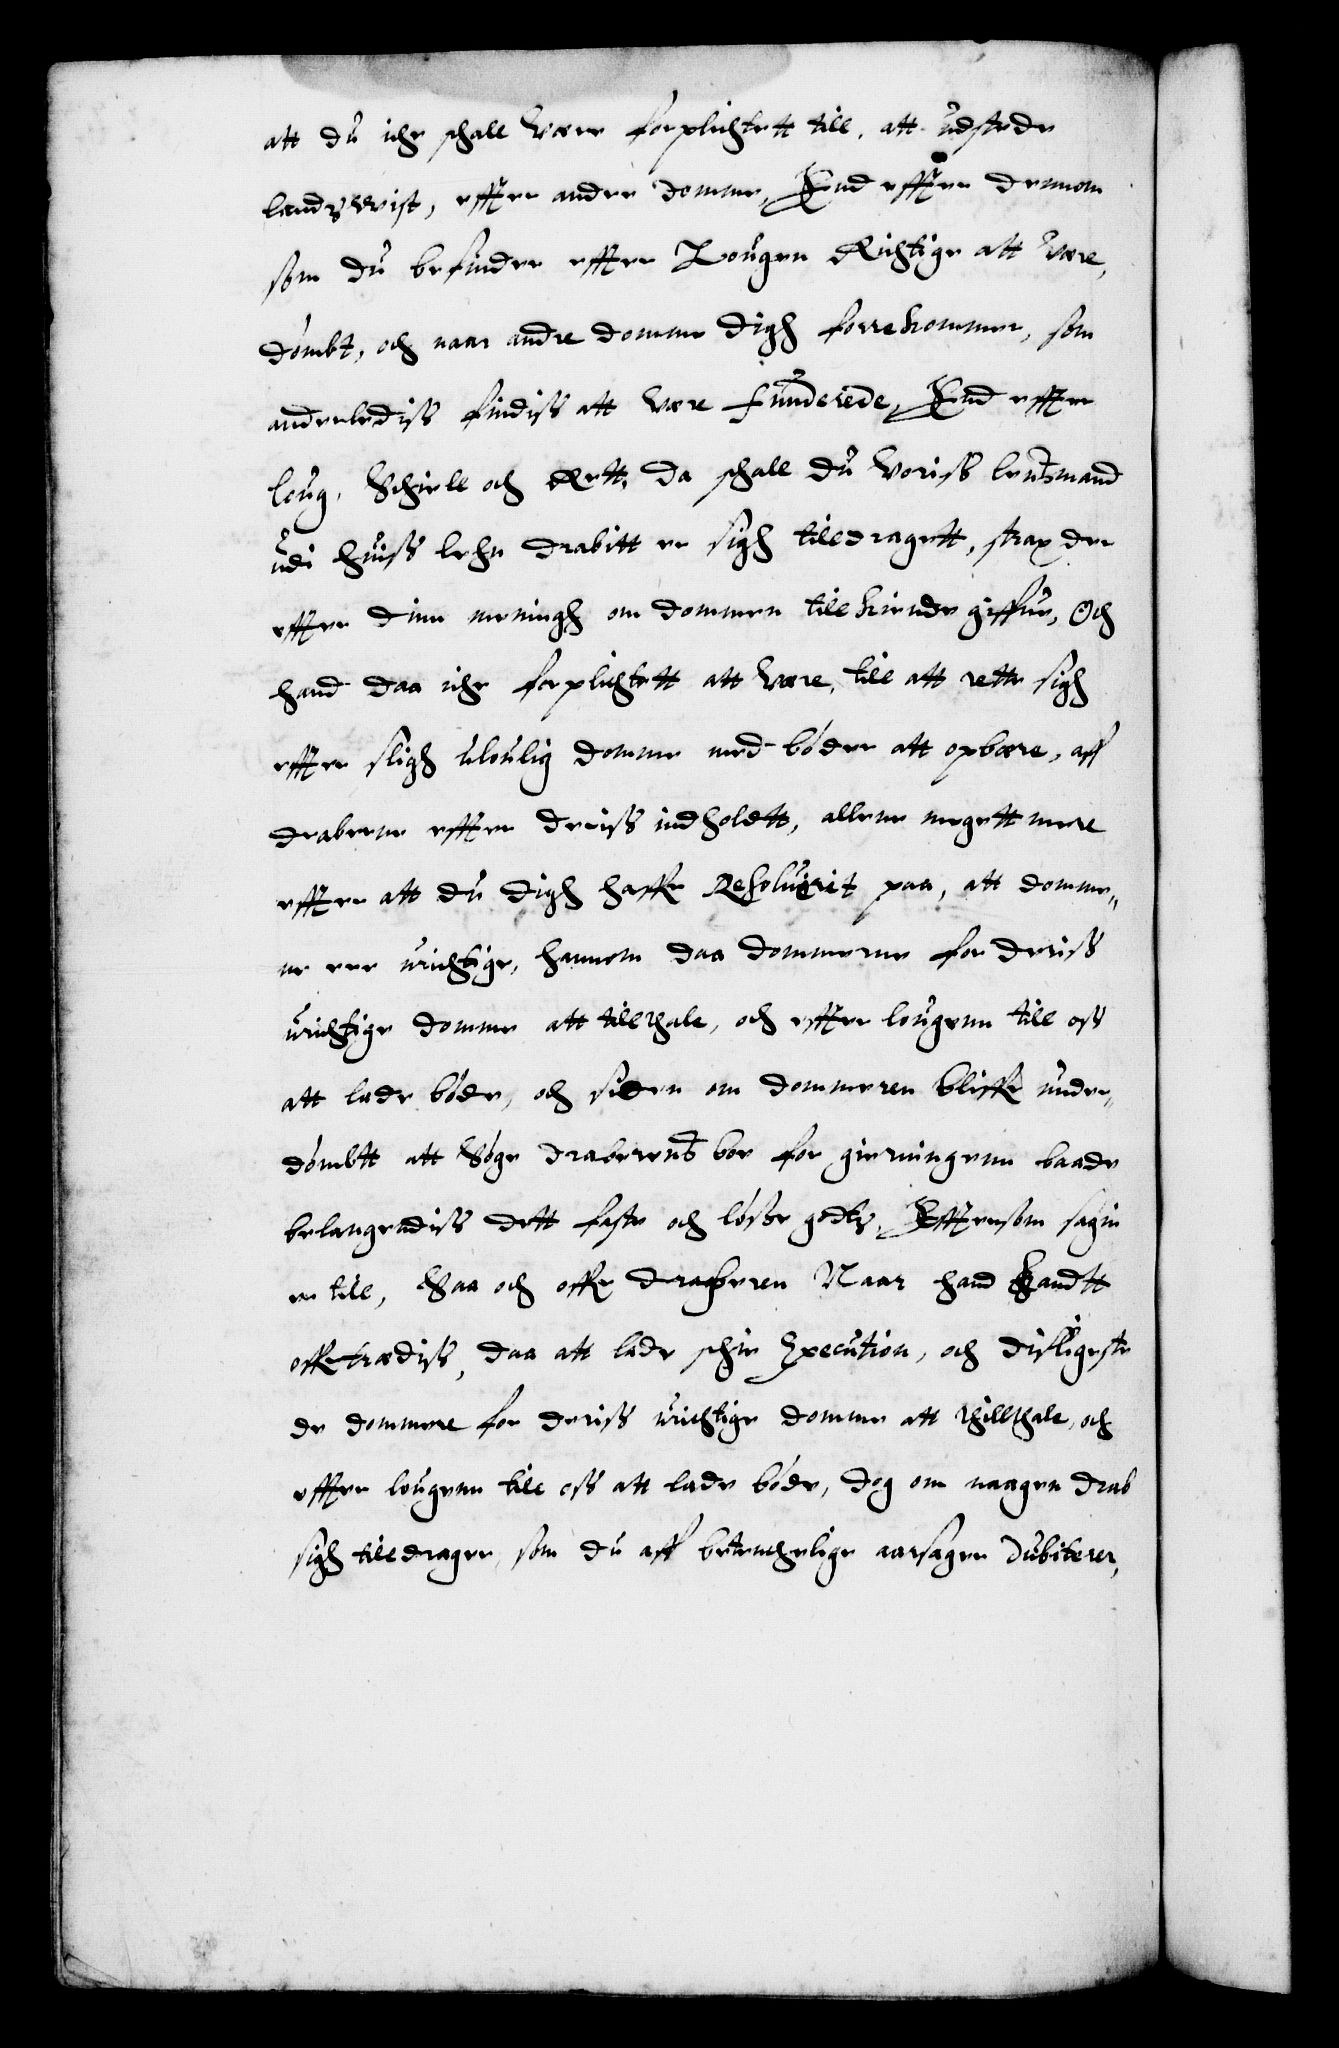 att du iche schall være forplichtett till, att udstede
landsvist, effter andre domme, End effter dennom
som du befinder effter Lougen Richtige att være,
dömbt, och naar andre domme digh forrekommer, som
anderledis findis att være funderede, End effter
loug, Schiell och Rett, da schall du voris lensmand
udi huis lehn drabitt er sigh tilldragett, strax der
effter dinn meningh om dommen tillkiende giffue, Och
hand daa iche forplichtett att være, till att rette sigh
effter sligh uloulig domme med böder att opbære, aff
draberne effter deris indholdtt, allene megett mere
effter att du digh haffr Resoluerit paa, att domme„
ne ere urichtige, hannom daa dommerne for deris
urichtige domme att tillthale, och effter lougenn till oss
att lade böde, och siden om dommeren bliffr under„
dömbtt att Söge draberens boe for gierningenn baade
belangendis dett faste och lösse godtz, Efftersom sagen
er till, Saa och offr draberen Naar hand kandtt
offrtrædis, daa att lade schie Execution, och disligeste
de dommere for deris urichtige domme att thillthale, och
effter lougenn till oss att lade böde, dog om naagen drab
sigh tilldrager, som du aff betenchelige aarsager dubiterer,